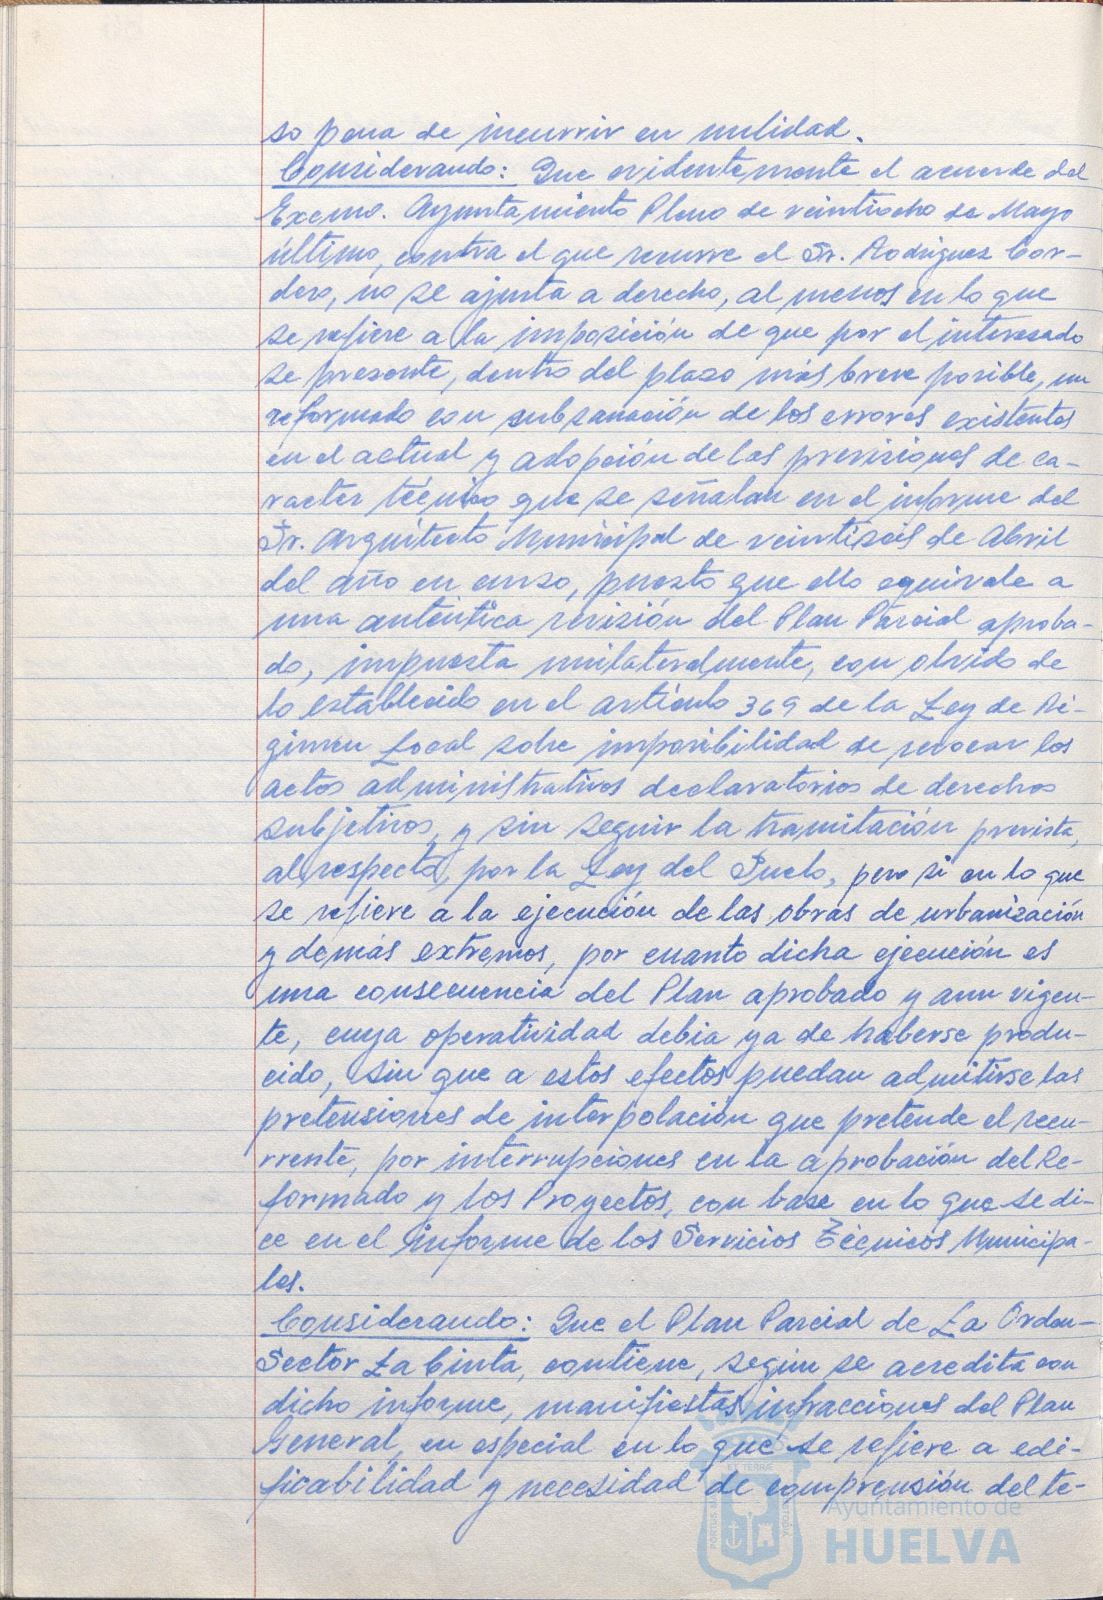 so pena de incurrir en nulidad.
Considerando: Que evidentemente el acuerdo del
Excmo. Ayuntamiento Pleno de veintiocho de Mayo
último, contra el que recurre el Sr. Rodriguez Cor-
dero, no se ajusta a derecho, al menos en lo que
se refiere a la imposición de que por el interesado
se presente, dentro del plazo más breve posible, un
reformado con subsanación de los errores existentes
en el actual y adopción de las previsiones de ca-
racter técnico que se señalan en el informe del
Sr. Arquitecto Municipal de veintiseis de Abril
del año en curso, puesto que ello equivale a
una auténtica revisión del Plan Parcial aproba-
do, impuesta unilateralmente, con olvido de
lo establecido en el artículo 369 de la Ley de Ré-
gimen Local sobre imposibilidad de revocar los
actos administrativos declaratorios de derechos
subjetivos, y sin seguir la tramitación prevista,
al respecto, por la Ley del Suelo, pero si en lo que
se refiere a la ejecución de las obras de urbanización
y demás extremos, por cuanto dicha ejecución es
una consecuencia del Plan aprobado y aun vigen-
te, cuya operatividad debia ya de haberse produ-
cido, sin que a estos efectos puedan admitirse las
pretensiones de interpolación que pretende el recu-
rrente, por interrupciones en la aprobación del Re-
formado y los Proyectos, con base en lo que se di-
ce en el informe de los Servicios Técnicos Municipa-
les.
Considerando: Que el Plan Parcial de La Orden-
Sector La Cinta, contiene, según se acredita con
dicho informe, manifiestas infracciones del Plan
General, en especial en lo que se refiere a edi-
ficabilidad y necesidad de comprensión del te-
Ayuntamiento de
HUELVA